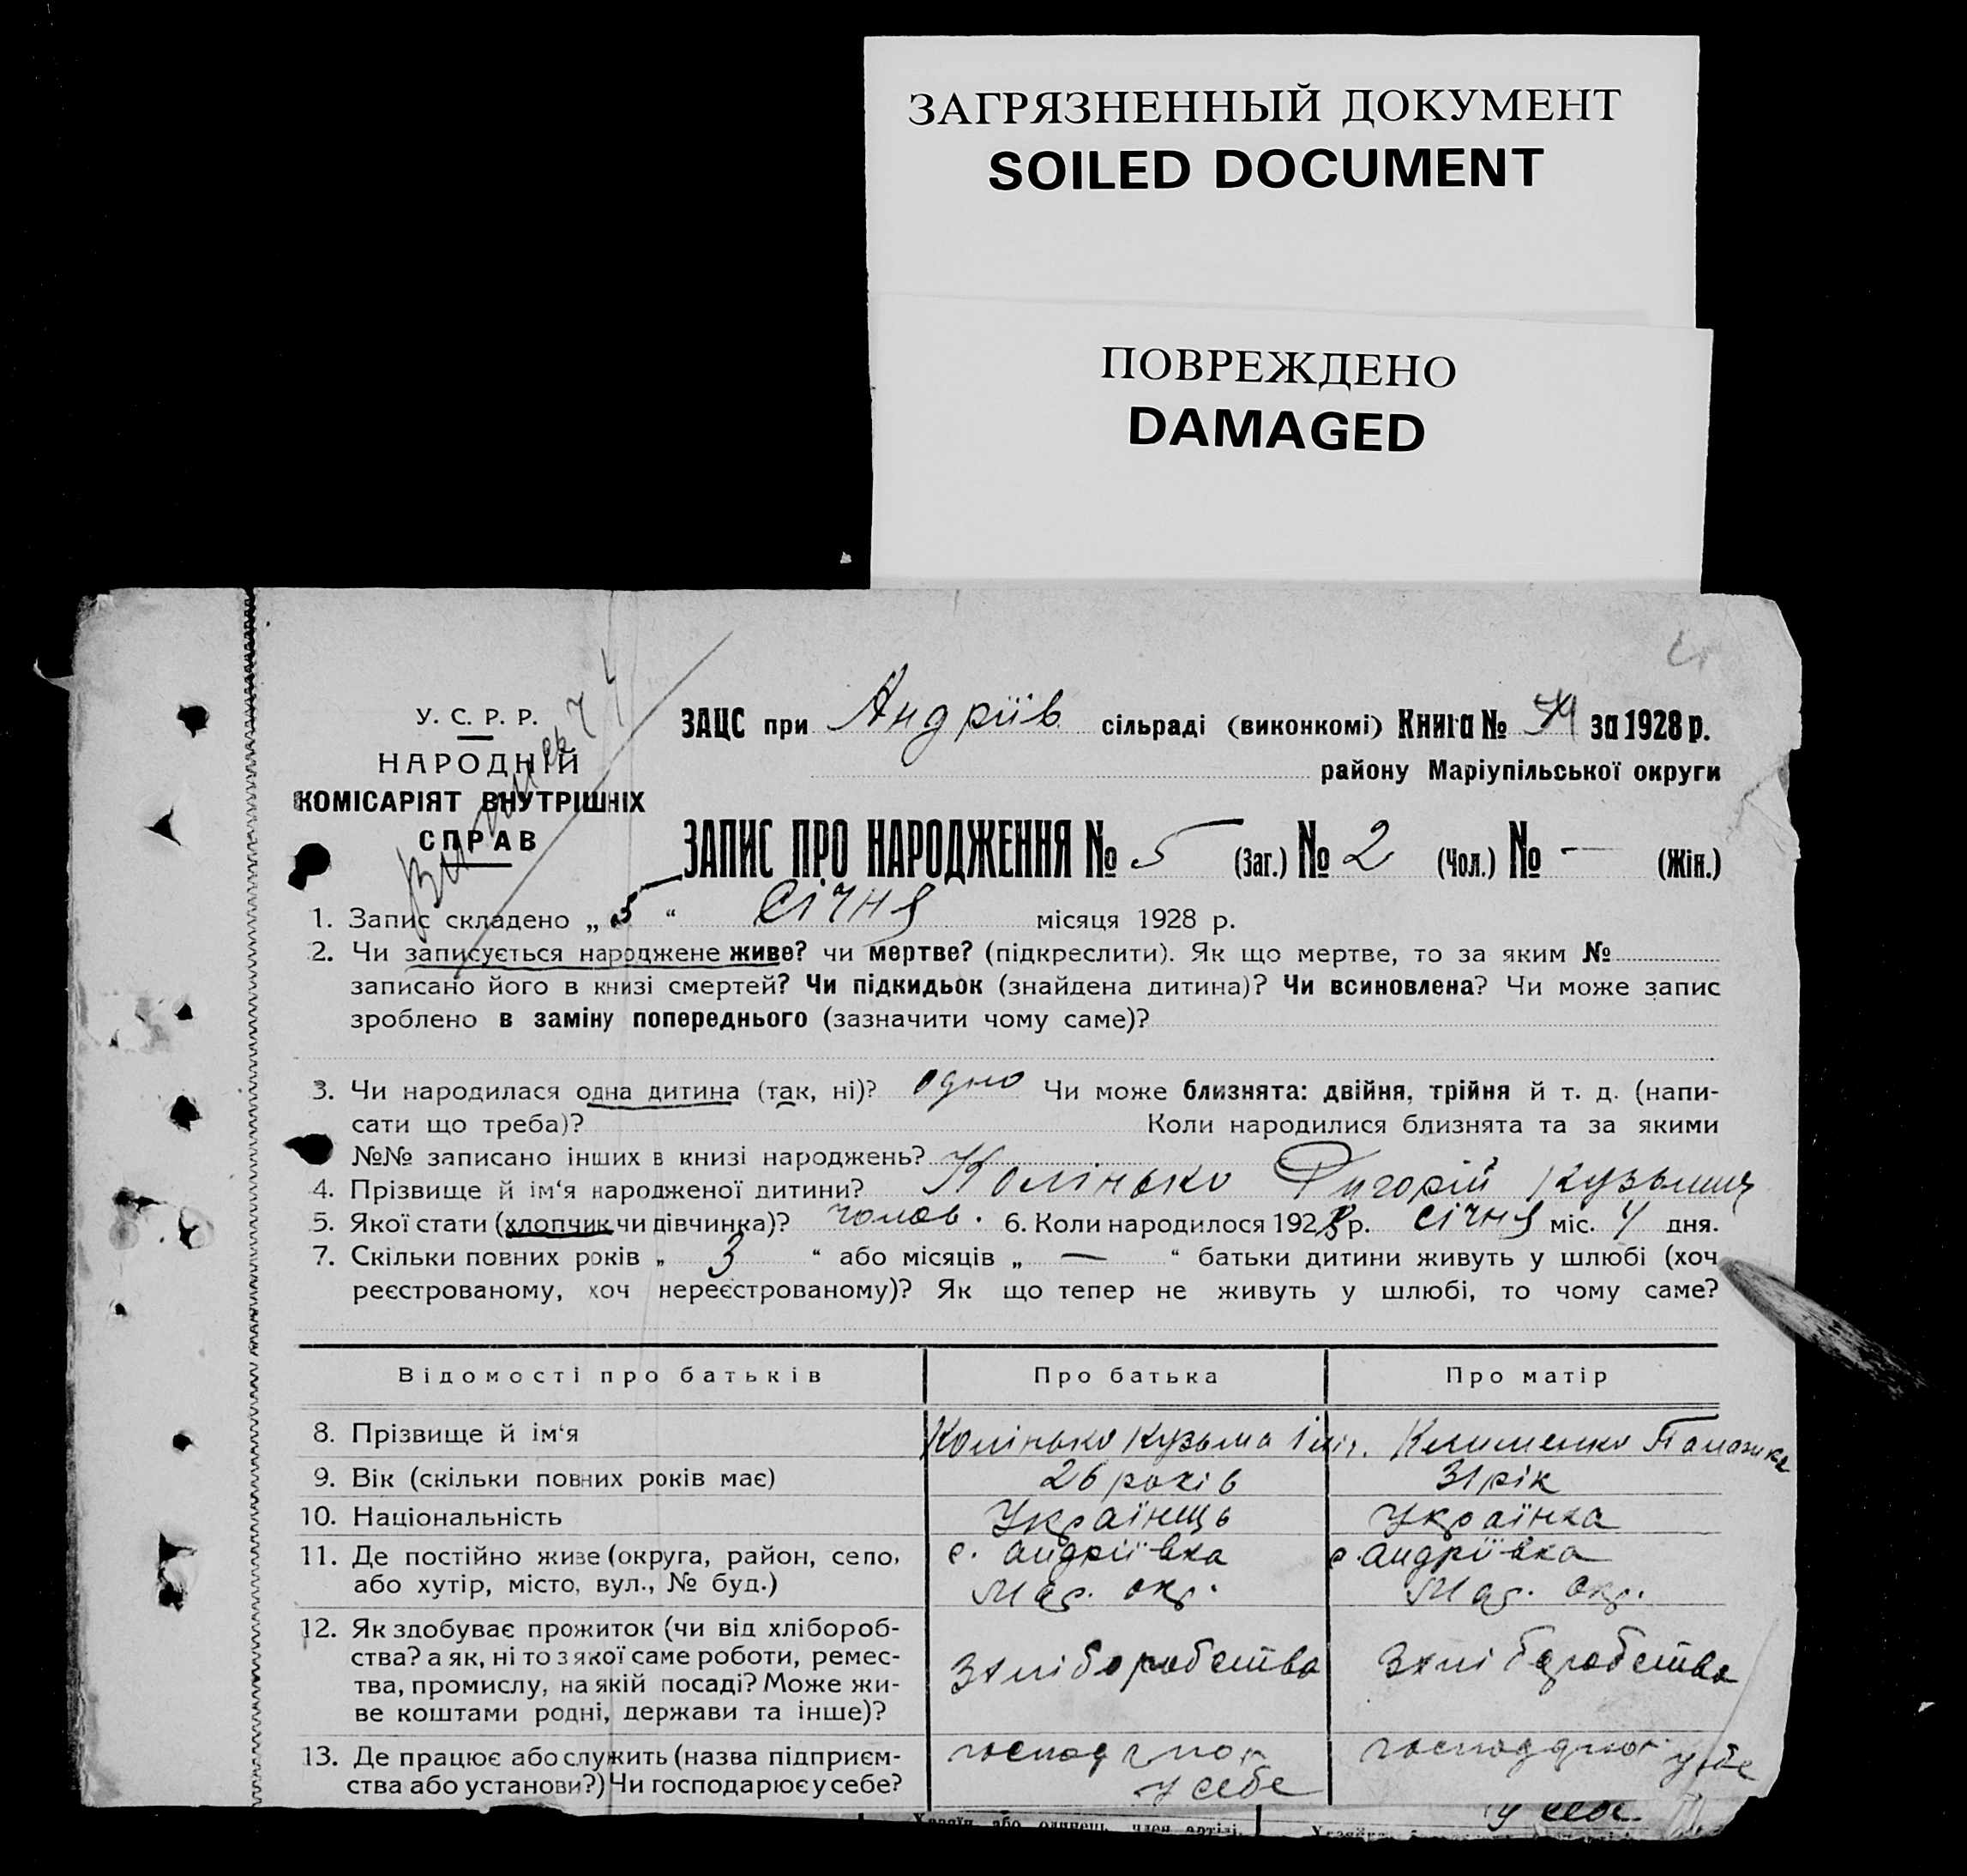 ЗАГРЯЗНЕННЫЙ ДОКУМЕНТ
SOILED DOCUMENT
ПОВРЕЖДЕНО
DAMAGED
У. С. Р. Р.
НАРОДНІЙ
КОМІСАРІЯТ ВНУТРІШНІХ
СПРАВ
ЗАЦС при Андріїв сільраді (виконкомі) Книга № за 1928 р.
району Маріупільської округи
ЗАПИС ПРО НАРОДЖЕННЯ № 5 (Заг.) № 2 (Чол.) № — (Жін.)
1. Запис складено „ 5 “ Січня місяця 1928 р.
2. Чи записується народжене живе? чи мертве? (підкреслити). Як що мертве, то за яким №
записано його в книзі смертей? Чи підкидьок (знайдена дитина)? Чи всиновлена? Чи може запис
зроблено в заміну попереднього (зазначити чому саме)?
3. Чи народилася одна дитина (так, ні)? одно Чи може близнята: двійня, трійня й т. д. (напи-
сати що треба)? Коли народилися близнята та за якими
№№ записано інших в книзі народжень?
4. Прізвище й ім‘я народженої дитини? Колінько Григорій Кузьмич
5. Якої стати (хлопчик чи дівчинка)? чолов. 6. Коли народилося 1928 р. Січня міс. 4 дня.
7. Скільки повних років „ 3 “ або місяців „ — “ батьки дитини живуть у шлюбі (хоч
реєстрованому, хоч нереєстрованому)? Як що тепер не живуть у шлюбі, то чому саме?
Відомості про батьків Про батька Про матір
8. Прізвище й ім‘я Колінько Кузьма Клименко
9. Вік (скільки повних років має) 26 років 31 рік
10. Національність Українець Українка
11. Де постійно живе (округа, район, село, с. Андріївка с. Андріївка
або хутір, місто, вул., № буд.) Мар. окр. Мар. окр.
12. Як здобуває прожиток (чи від хлібороб-
ства? а як, ні то з якої саме роботи, ремес- З хліборобства З хліборобства
тва, промислу, на якій посаді? Може жи-
ве коштами родні, держави та інше)?
13. Де працює або служить (назва підприєм-
ства або установи?) Чи господарює у себе? у себе у себе
у себе
або одинець, член артілі,